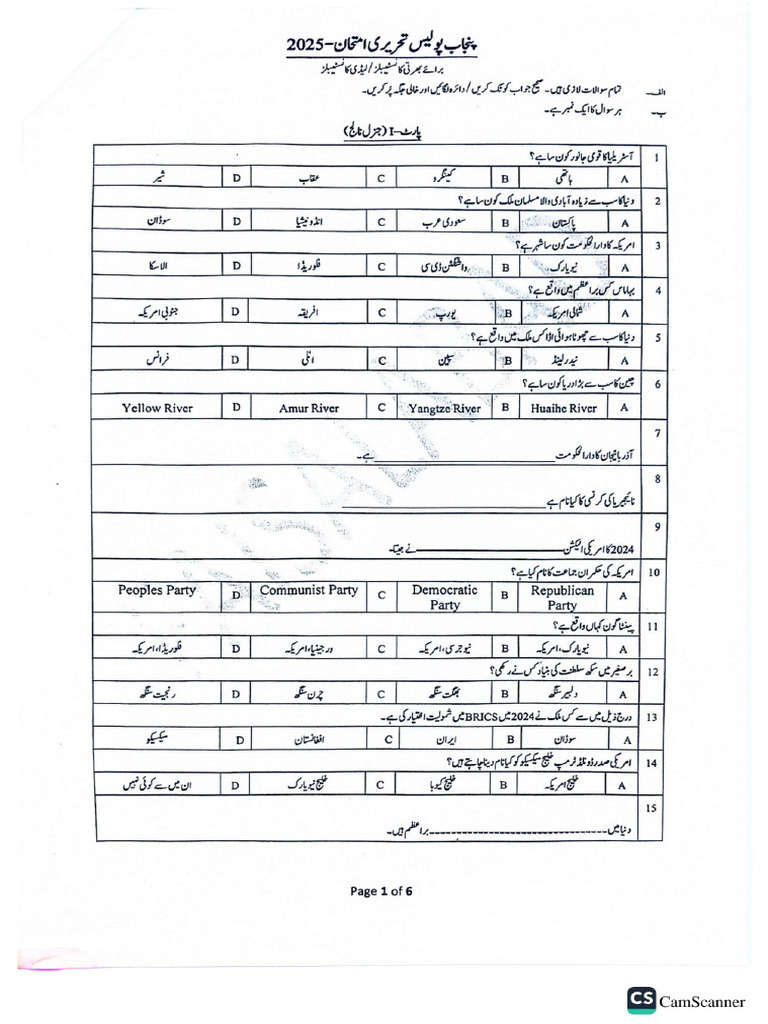 پنجاب پولیس تحریری امتحان-2025
برائے بھرتی کانسٹیبلز/لیڈی کانسٹیبلز
الف۔ تمام سوالات لازمی ہیں۔ صحیح جواب کو ٹک کریں/دائرہ لگائیں اور خالی جگہ پُر کریں۔
ب۔ ہر سوال کا ایک نمبر ہے۔
پارٹ-I (جنرل نالج)
1 آسٹریلیا کا قومی جانور کون سا ہے؟
A ہاتھی B کینگرو C عقاب D شیر
2 دنیا کا سب سے زیادہ آبادی والا مسلمان ملک کون سا ہے؟
A پاکستان B سعودی عرب C انڈونیشیا D سوڈان
3 امریکہ کا دارالحکومت کون سا شہر ہے؟
A نیویارک B واشنگٹن ڈی سی C فلوریڈا D الاسکا
4 بہاماس کس براعظم میں واقع ہے؟
A شمالی امریکہ B یورپ C افریقہ D جنوبی امریکہ
5 دنیا کا سب سے چھوٹا ہوائی اڈا کس ملک میں واقع ہے؟
A نیدرلینڈ B سپین C اٹلی D فرانس
6 چین کا سب سے بڑا دریا کون سا ہے؟
A Huaihe River B Yangtze River C Amur River D Yellow River
7
آذربائیجان کا دارالحکومت ______________ ہے۔
8
نائیجیریا کی کرنسی کا کیا نام ہے ______________
9
2024 کا امریکی الیکشن ______________ نے جیتا۔
10 امریکہ کی حکمران جماعت کا نام کیا ہے؟
A Republican Party B Democratic Party C Communist Party D Peoples Party
11 پینٹاگون کہاں واقع ہے؟
A نیویارک، امریکہ B نیو جرسی، امریکہ C ورجینیا، امریکہ D فلوریڈا، امریکہ
12 برصغیر میں سکھ سلطنت کی بنیاد کس نے رکھی؟
A دلبیر سنگھ B بھگت سنگھ C چرن سنگھ D رنجیت سنگھ
13 درج ذیل میں سے کس ملک نے 2024 میں BRICS میں شمولیت اختیار کی ہے۔
A سوڈان B ایران C افغانستان D میکسیکو
14 امریکی صدر ڈونلڈ ٹرمپ خلیج میکسیکو کو کیا نام دینا چاہتے ہیں؟
A خلیج امریکہ B خلیج کیوبا C خلیج نیویارک D ان میں سے کوئی نہیں
15
دنیا میں ------------------------------ براعظم ہیں۔
Page 1 of 6
CS CamScanner